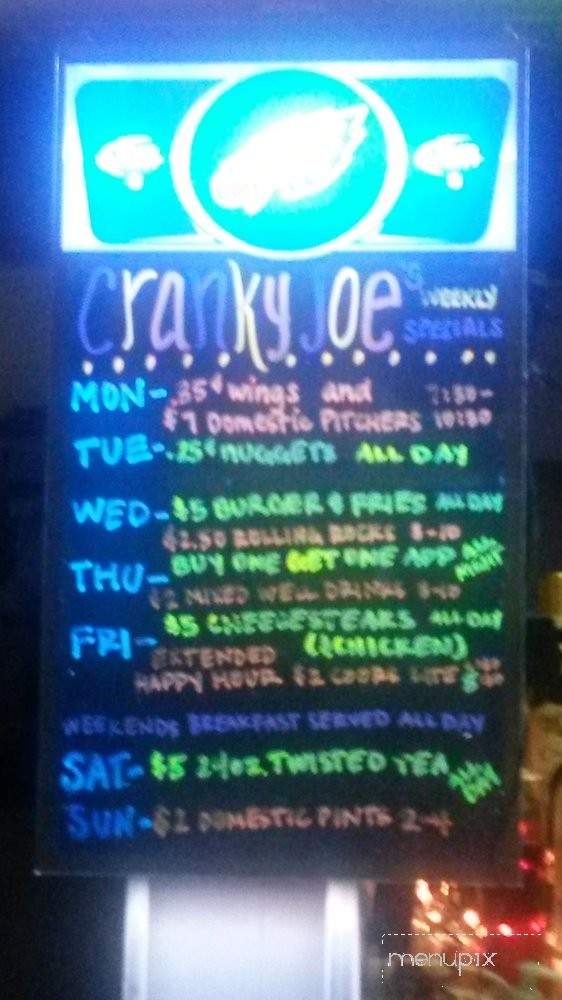 cranky Joe's WEEKLY
SPECIALS
MON- .35¢ wings and 7:30-
$7 Domestic PITCHERS 10:30
TUE- .25¢ NUGGETS ALL DAY
WED- $5 BURGER & FRIES ALL DAY
$2.50 ROLLING ROCKS 8-10
THU- BUY ONE GET ONE APP ALL NIGHT
$2 MIXED WELL DRINKS 8-10
FRI- $5 CHEESESTEAKS ALL DAY
(& CHICKEN)
EXTENDED
HAPPY HOUR $2 COORS LITE
WEEKENDS BREAKFAST SERVED ALL DAY
SAT- $5 24oz. TWISTED TEA ALL DAY
SUN- $2 DOMESTIC PINTS 2-4
menupix